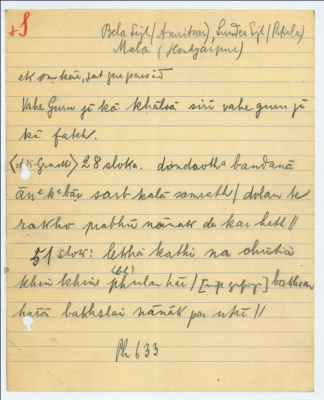 +S
Bela Singh (Amritsar), Sunder Singh (Patiala)
Mala (Hoshyarpur)
ek omkār, sat gur parsād
Vahe Guru jī kā khālsā sirī vahe guru jī
kī fateh.
(Adi-Granth) 28 sloka. dandaotha bandanā
ān e kebār sarb kalā samrath / dolan te
rakho prabhū nānak de kar hath //
51 slok: lekhā kathī na chutiā
khin khin bhulan hār / bakhsan
hārā bakhslai nānāk par utār //
Ph 633